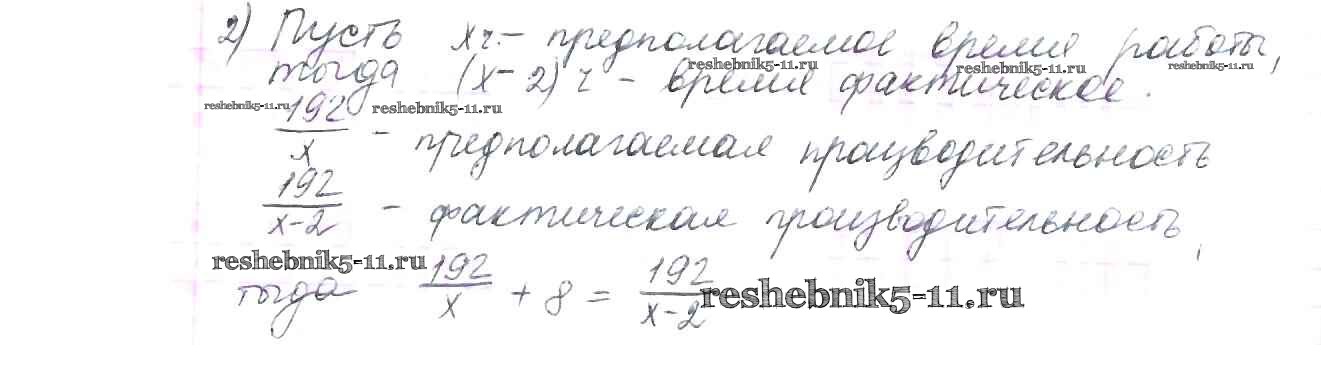 2) Пусть x ч. – предполагаемое время работы,
reshebnik5-11.ru reshebnik5-11.ru reshebnik5-11.ru
тогда (x – 2) ч – время фактическое.
reshebnik5-11.ru reshebnik5-11.ru
192/x – предполагаемая производительность
192/x–2 – фактическая производительность,
reshebnik5-11.ru
тогда 192/x + 8 = 192/x–2
reshebnik5-11.ru